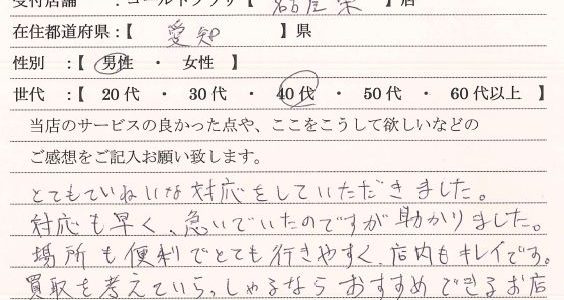 受付店舗 :ゴールドプラザ【 名古屋栄 】店
在住都道府県:【 愛知 】県
性別 :【 男性 ・ 女性 】
世代 :【 20代 ・ 30代 ・ 40代 ・ 50代 ・ 60代以上 】
当店のサービスの良かった点や、ここをこうして欲しいなどの
ご感想をご記入お願い致します。
とてもていねいな対応をしていただきました。
対応も早く、急いでいたのですが助かりました。
場所も便利でとても行きやすく、店内もキレイです。
買取を考えていらっしゃるならおすすめできるお店